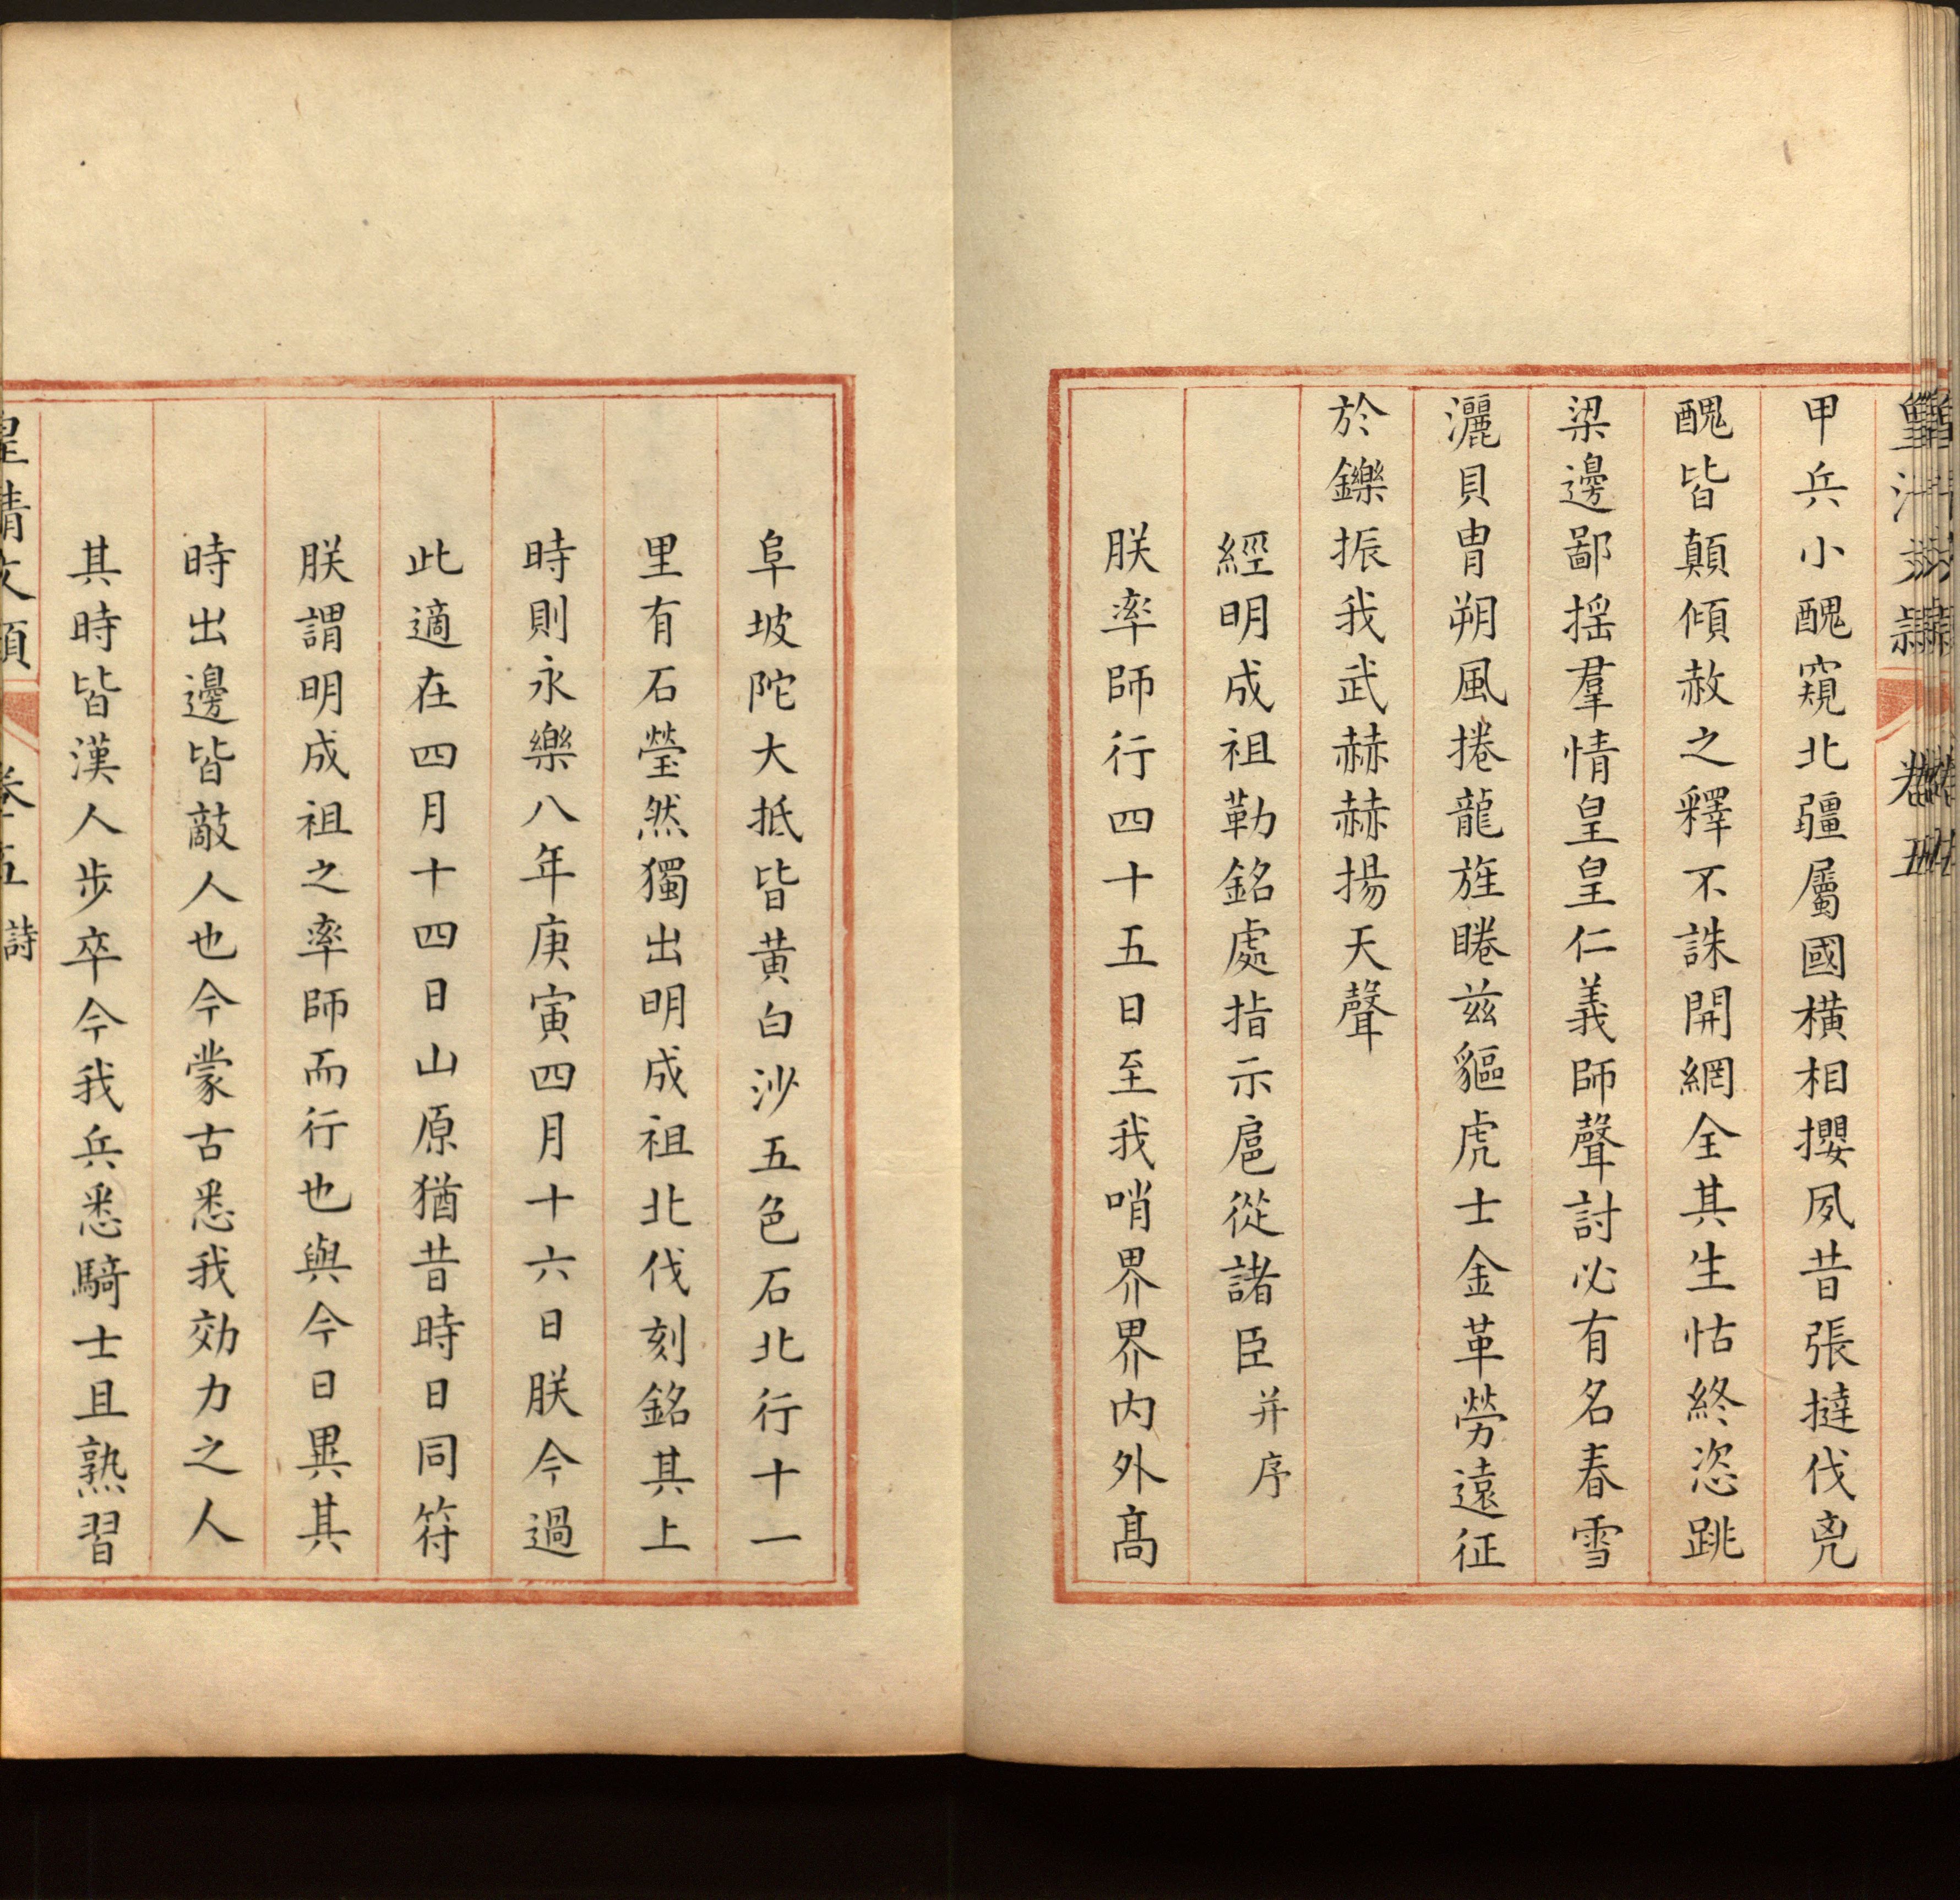 甲兵小醜窺北疆屬國橫相攖夙昔張撻伐兇
醜皆顛傾赦之釋不誅開網全其生怙終恣跳
梁邊鄙揺羣情皇皇仁義師聲討必有名春雪
灑貝冑朔風捲龍旌睠兹貙虎士金革勞遠征
於鑠振我武赫赫揚天聲
經明成祖勒銘處指示扈從諸臣并序
朕率師行四十五日至我哨界界内外髙
阜坡陀大抵皆黄白沙五色石北行十一
里有石瑩然獨出明成祖北伐刻銘其上
時則永樂八年庚寅四月十六日朕今過
此適在四月十四日山原猶昔時日同符
朕謂明成祖之率師而行也與今日異其
時出邊皆敵人也今蒙古悉我効力之人
其時皆漢人步卒今我兵悉騎士且熟習
皇清文穎 卷五 詩